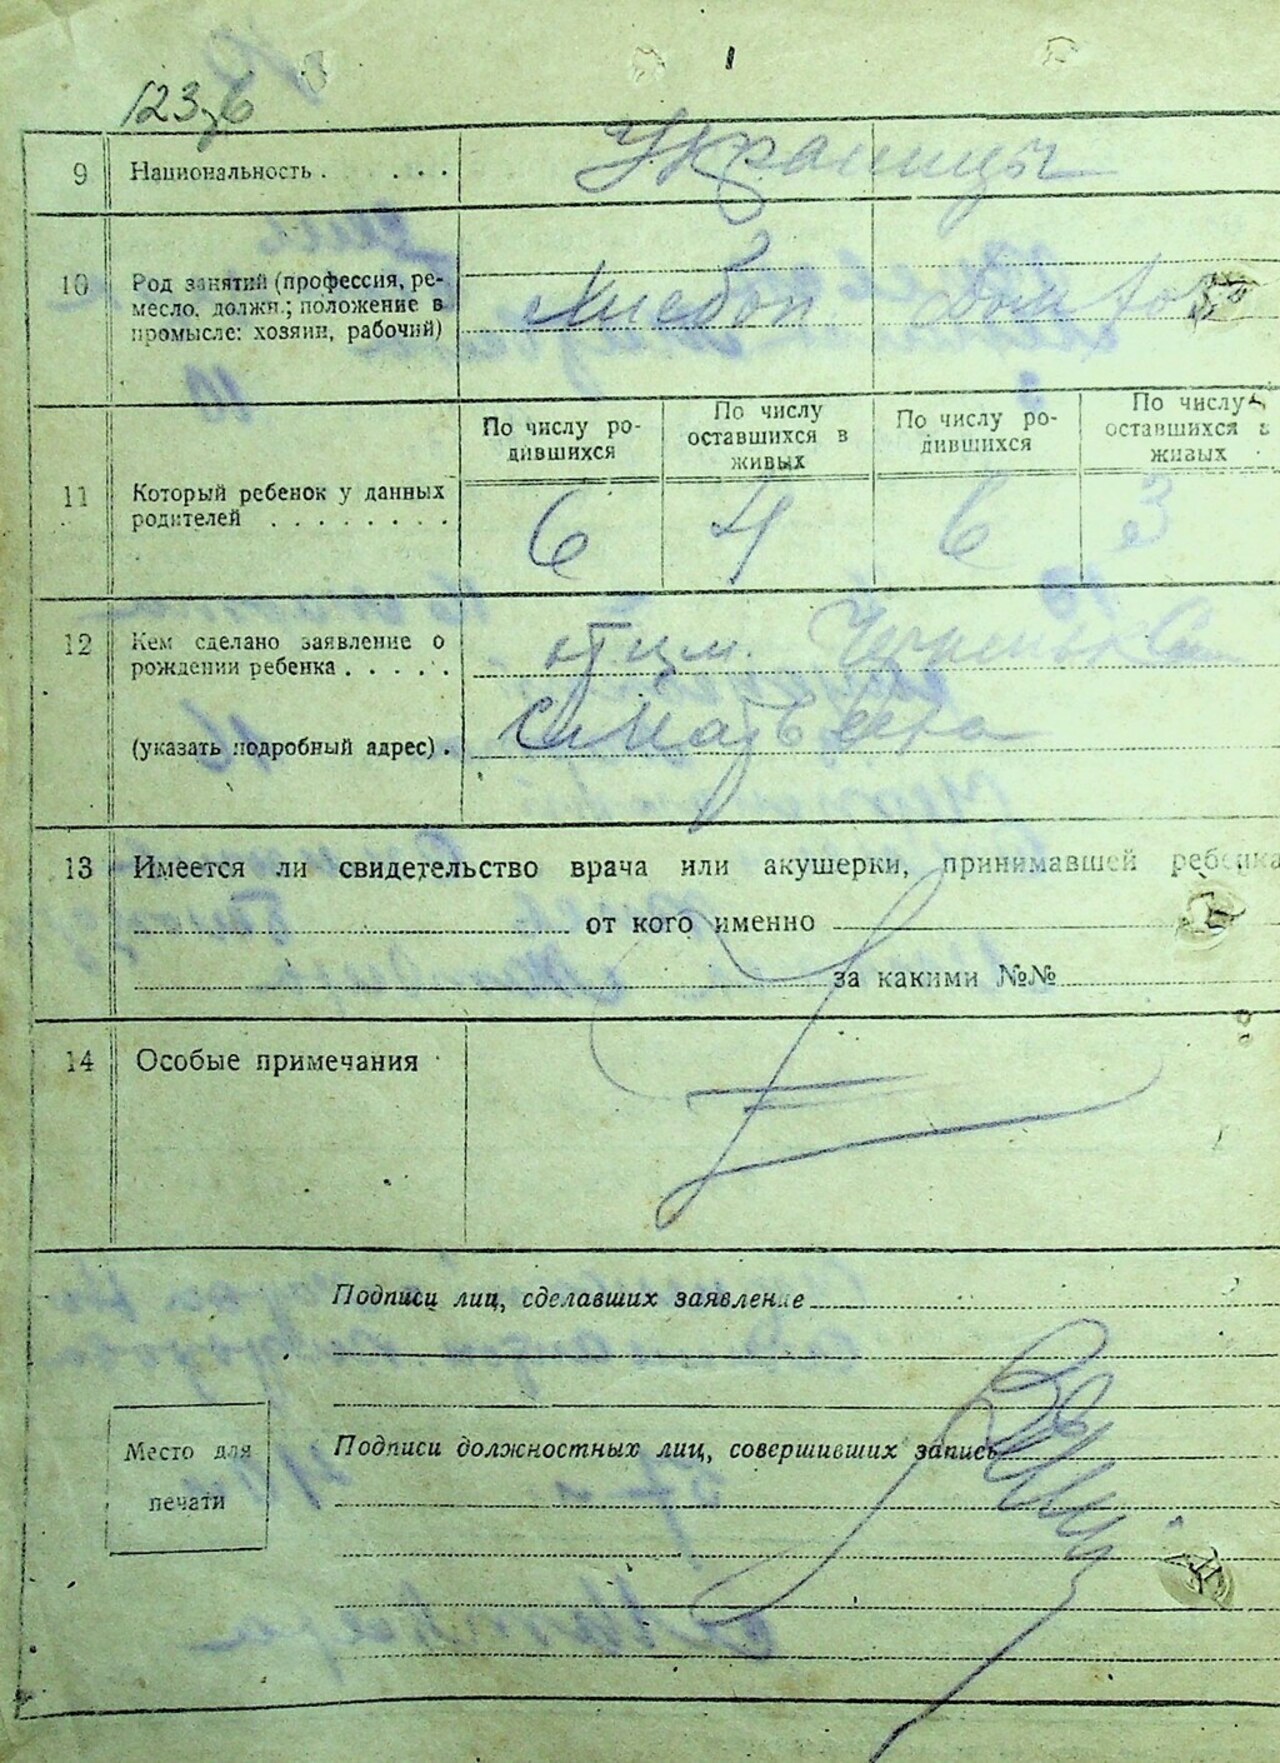 9 Национальность . . . . Украинцы
10 Род занятий (профессия, ре-
месло, должн.; положение в
промысле: хозяин, рабочий)
Хлебоп. Дом хоз
11 Который ребенок у данных
родителей . . . . . . . .
По числу ро-
дившихся
По числу
оставшихся в
живых
По числу ро-
дившихся
По числу
оставшихся в
живых
6 4 6 3
12 Кем сделано заявление о
рождении ребенка . . . . .
отцом.
(указать подробный адрес) .
13 Имеется ли свидетельство врача или акушерки, принимавшей ребенка
от кого именно
за какими №№
14 Особые примечания
Подписи лиц, сделавших заявление
Подписи должностных лиц, совершивших запись
Место для
печати